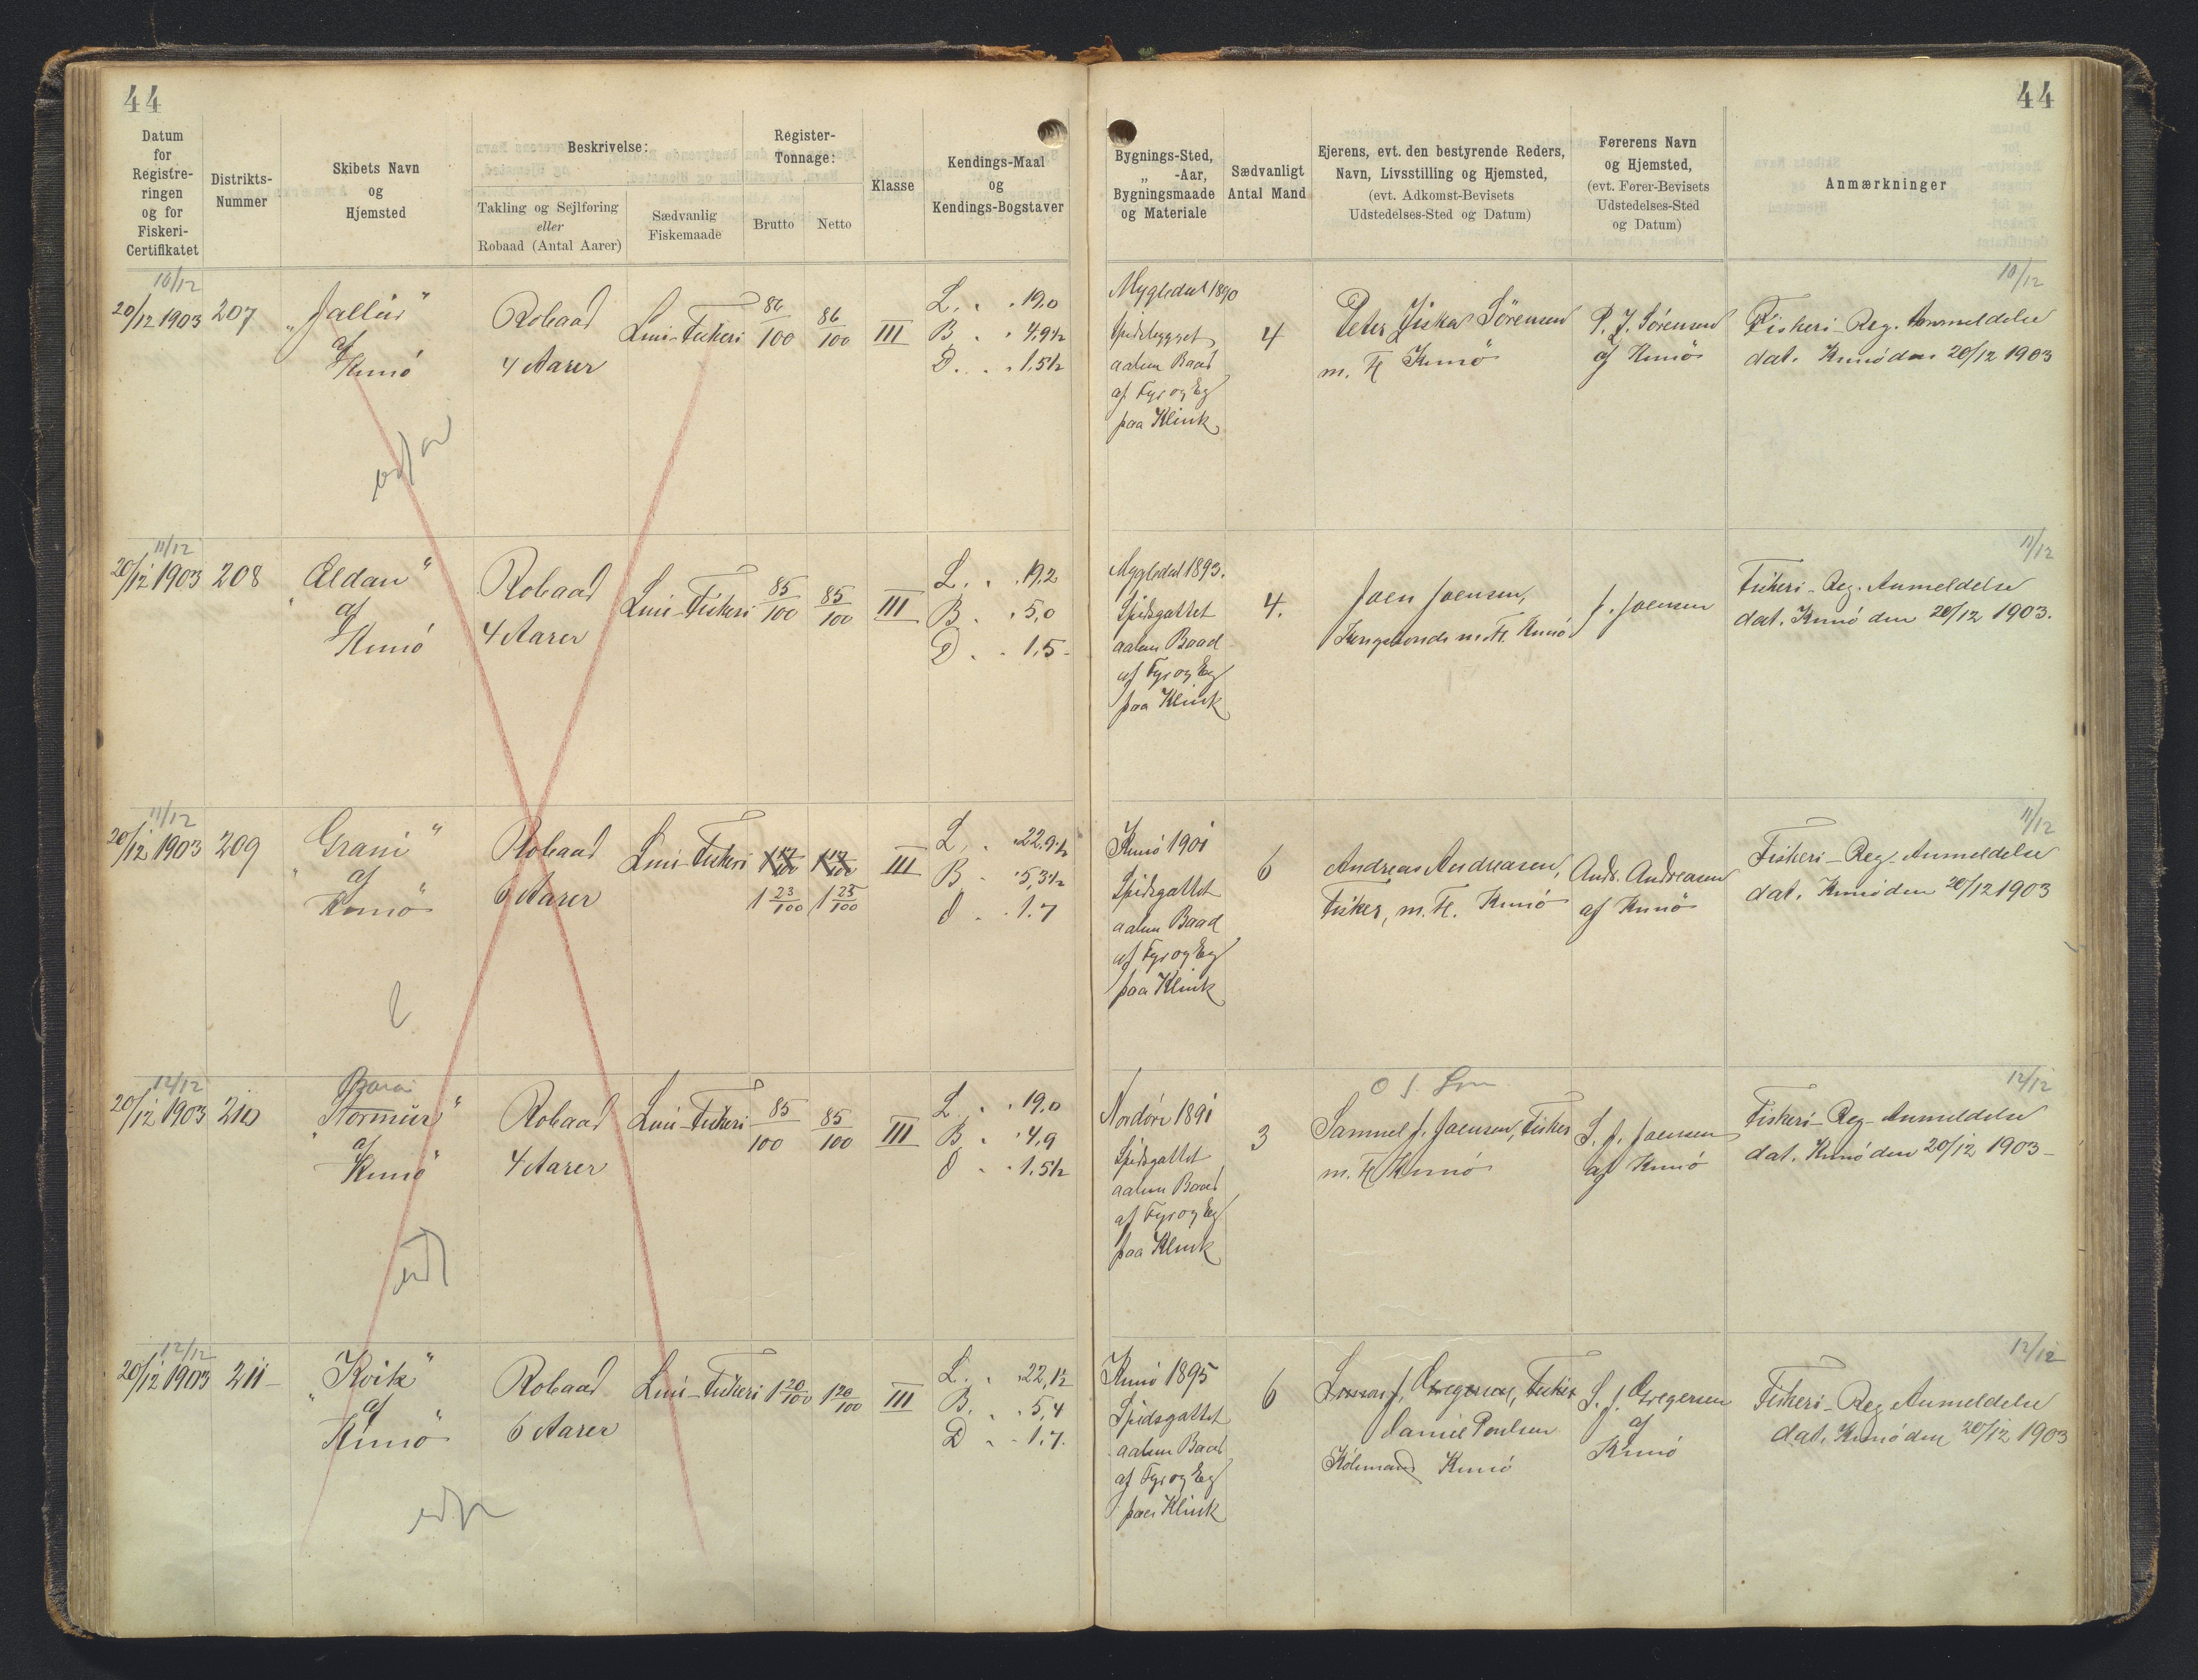 44
44
Datum
for
Registre-
ringen
og for
Fiskeri-
Certifikatet
Distrikts-
Nummer
Skibets Navn
og
Hjemsted
Beskrivelse:
Takling og Sejlføring
eller
Robaad (Antal Aarer)
Sædvanlig
Fiskemaade
Register-
Tonnage:
Brutto
Netto
Klasse
Kendings-Maal
og
Kendings-Bogstaver
Bygnings-Sted,
„ -Aar,
Bygningsmaade
og Materiale
Sædvanligt
Antal Mand
Ejerens, evt. den bestyrende Reders,
Navn, Livsstilling og Hjemsted,
(evt. Adkomst-Bevisets
Udstedelses-Sted og Datum)
Førerens Navn
og Hjemsted,
(evt. Fører-Bevisets
Udstedelses-Sted
og Datum)
Anmærkninger
10/12
20/12 1903
207
af
Kunö
Robaad
4 Aarer
Lini-Fiskeri
86/100
86/100
III
L. . . 19,0
B . . 4,9½
D. . . 1,5½
Mygledal 1890
Spidsbygget
aaben Baad
af Fyr og Eg
paa Klink
4
Peter Sörensen
m. H Kunö
P. J. Sörensen
af Kunö
10/12
Fiskeri-Reg. Anmeldelse
dat. Kunö den 20/12 1903
11/12
20/12 1903
208
af
Kunö
Robaad
4 Aarer
Lini-Fiskeri
85/100
85/100
III
L. . . 19,2
B. . . 5,0
D . . 1,5
Mygledal 1893.
Spidsgattet
aaben Baad
af Fyr og Eg
paa Klink
4.
Joen Joensen,
Kongsbonde m. H. Kunö
J. Joensen
11/12
Fiskeri-Reg. Anmeldelse
dat. Kunö den 20/12 1903.
11/12
20/12 1903
209
„Grani“
af
Kunö
Robaad
6 Aarer
Lini-Fiskeri
1 23/100
1 23/100
III
L. . . 22,9½
B . . 5,3½
d . . 1.7
Kunö 1901
Spidsgattet
aaben Baad
af Fyr og Eg
paa Klink
6
Andreas Andreasen,
Fisker, m. H. Kunö
Andr. Andreasen
af Kunö
11/12
Fiskeri-Reg. Anmeldelse
dat. Kunö den 20/12 1903
12/12
20/12 1903
210
af
Kunö
Robaad
4 Aarer
Lini-Fiskeri
85/100
85/100
III
L . . 19,0
B . . 4,9
d . . 1,5½
Nordöre 1891
Spidsgattet
aaben Baad
af Fyr og Eg
paa Klink
3
Samuel J. Joensen, Fisker
m. H Kunö
S. J. Joensen
af Kunö
12/12
Fiskeri-Reg. Anmeldelse
dat. Kunö den 20/12 1903
12/12
20/12 1903
211
„Kvik“
af
Kunö
Robaad
6 Aarer
Lini-Fiskeri
1 20/100
1 20/100
III
L. . . 22,1½
B. . . 5,4
D . . 1.7.
Kunö 1895
Spidsgattet
aaben Baad
af Fyr og Eg
paa Klink
6
J. Gregersen, Fisker
Daniel Poulsen
Köbmand Kunö
S. J. Gregersen
af
Kunö
12/12
Fiskeri-Reg. Anmeldelse
dat. Kunö den 20/12 1903